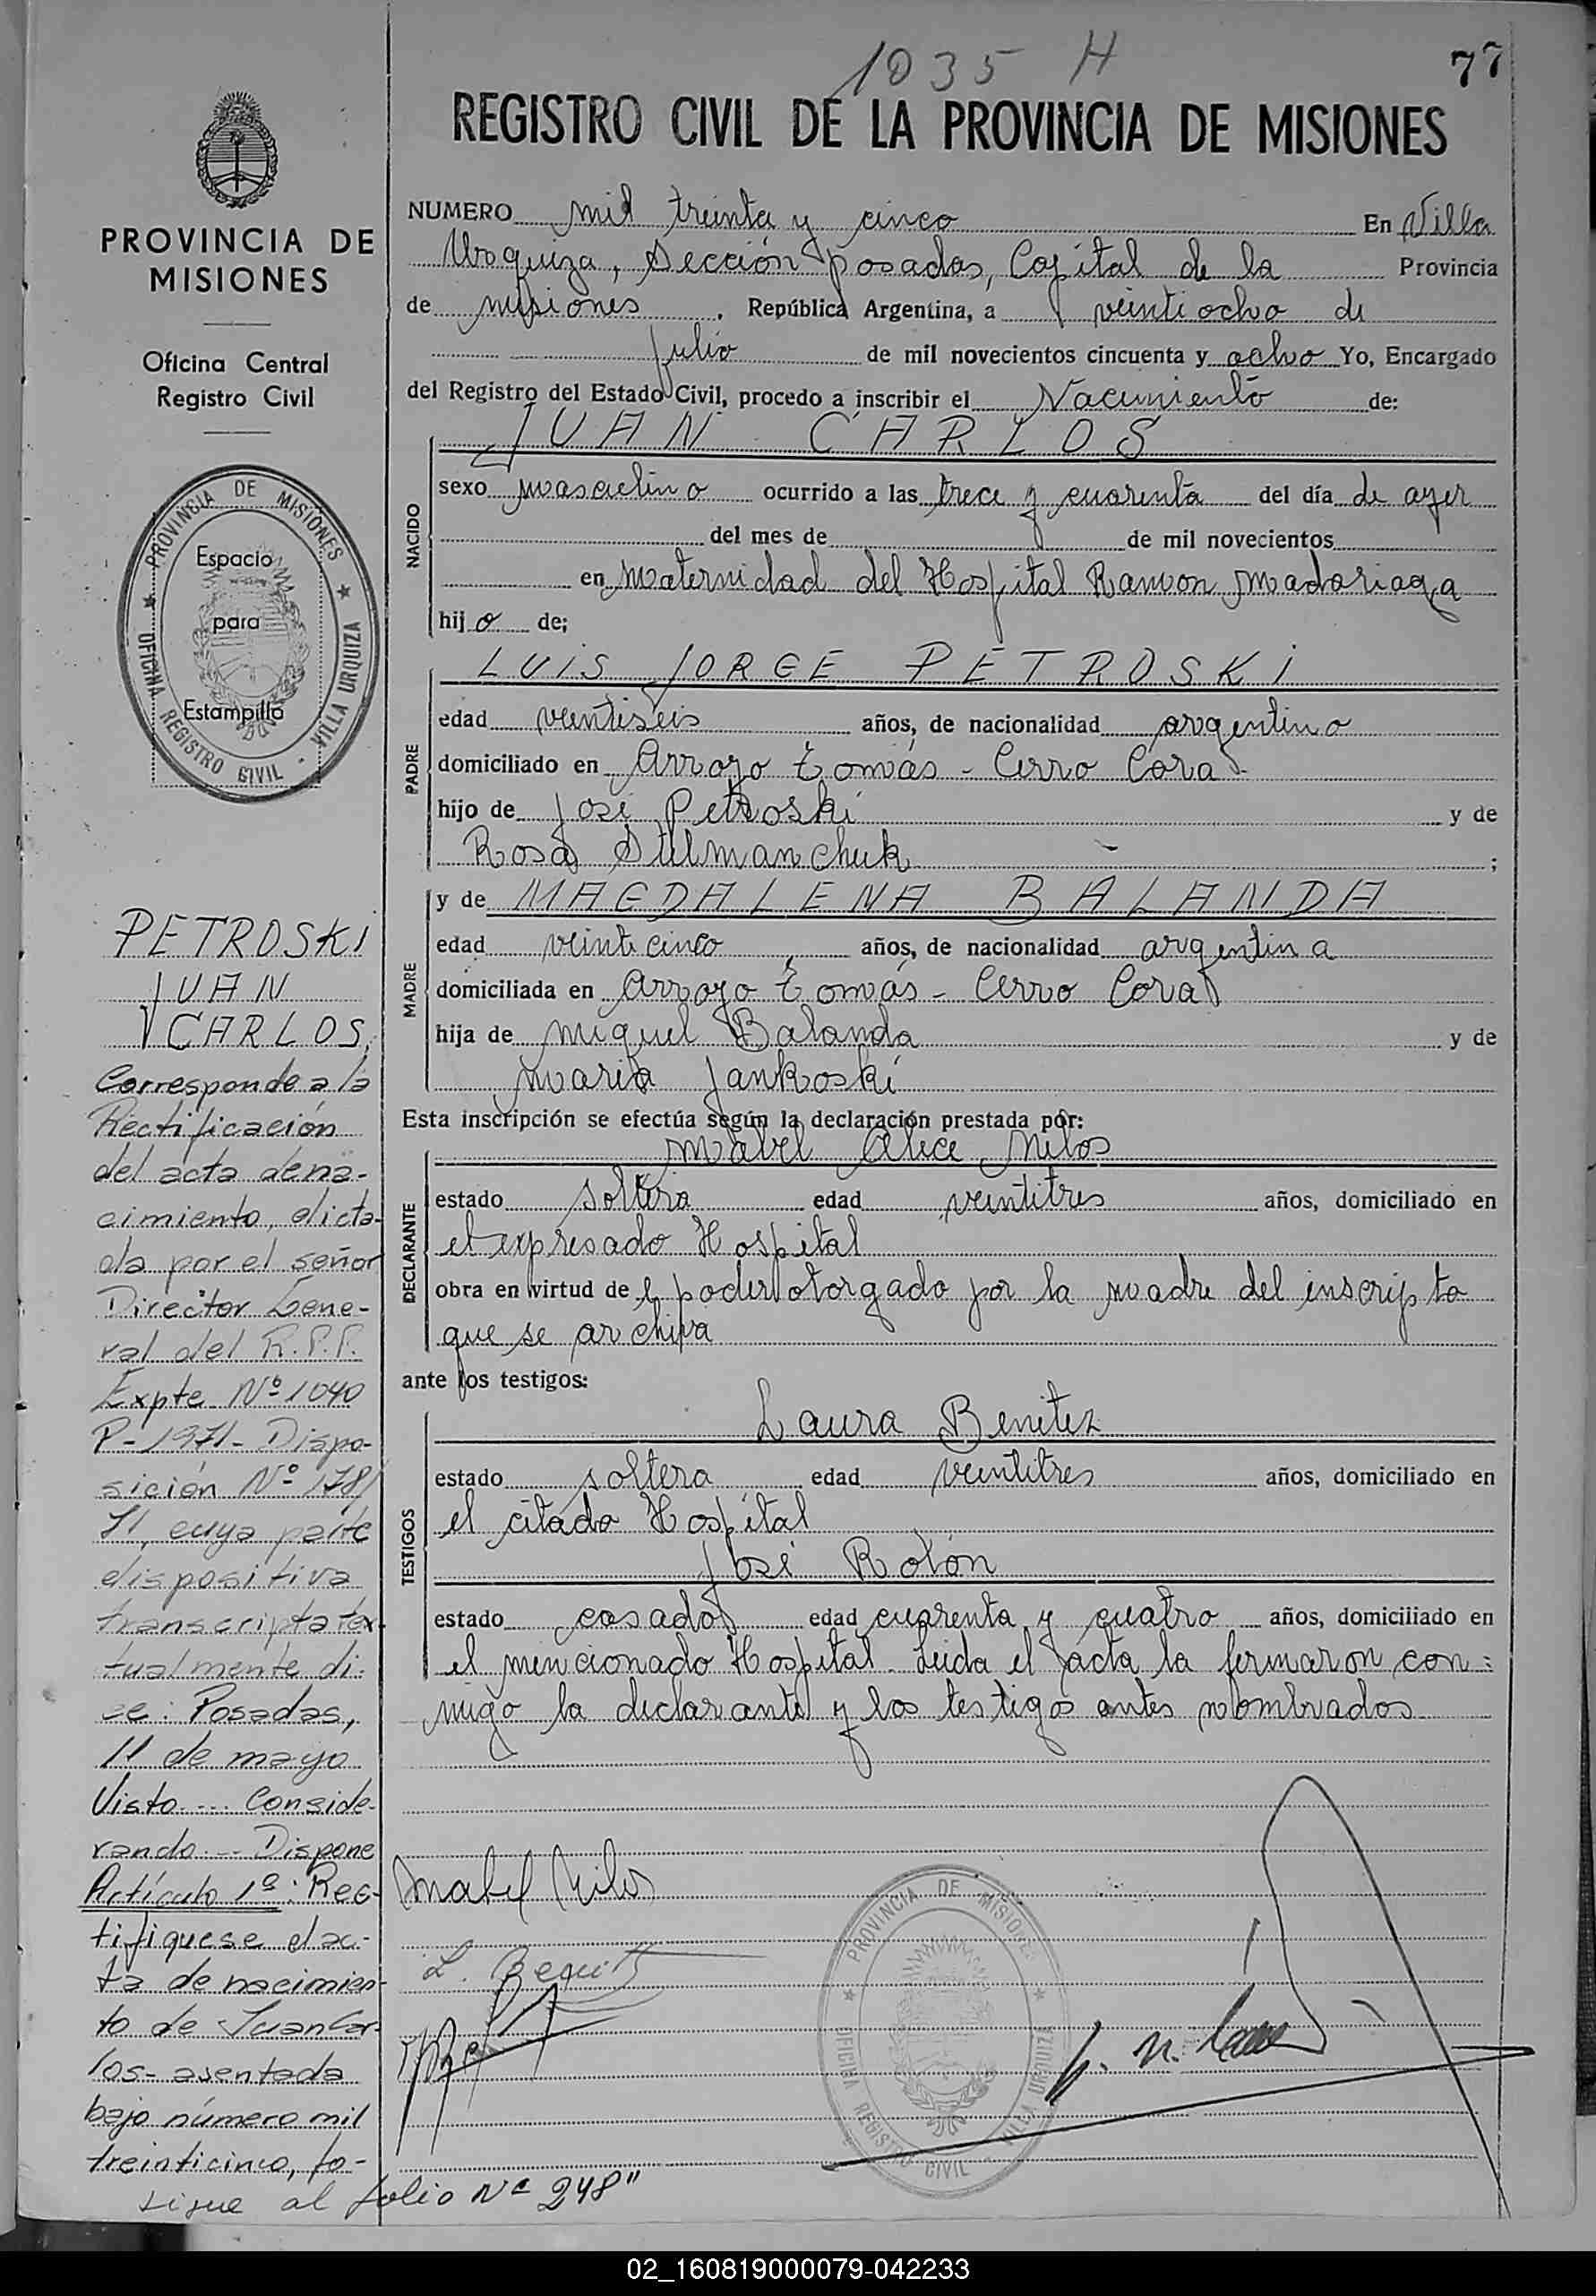 1035 H
77
REGISTRO CIVIL DE LA PROVINCIA DE MISIONES
PROVINCIA DE
MISIONES
Oficina Central
Registro Civil
PROVINCIA DE MISIONES
OFICINA REGISTRO CIVIL - VILLA URQUIZA
Espacio
para
Estampilla
PETROSKI
JUAN
CARLOS,
Corresponde a la
Rectificación
del acta de na-
cimiento, dicta-
da por el señor
Director Gene-
ral del R.P.P.
Expte Nº 1040
P-1971- Dispo-
sición Nº 178/
71, cuya parte
dispositiva
transcripta tex-
tualmente di-
ce: Posadas,
11 de mayo
Visto... Conside-
rando... Dispone
Artículo 1º: Rec-
tifiquese el ac-
ta de nacimien-
to de Juan Car-
los- asentada
bajo número mil
treinticinco, fo-
sigue al folio Nº 248"
NUMERO mil treinta y cinco En Villa
Urquiza, Sección Posadas, Capital de la Provincia
de Misiones, República Argentina, a veintiocho de
julio de mil novecientos cincuenta y ocho Yo, Encargado
del Registro del Estado Civil, procedo a inscribir el Nacimiento de:
NACIDO
JUAN CARLOS
sexo masculino ocurrido a las trece y cuarenta del día de ayer
del mes de de mil novecientos
en Maternidad del Hospital Ramon Madariaga
hijo de;
PADRE
LUIS JORGE PETROSKI
edad veintiseis años, de nacionalidad argentino
domiciliado en Arroyo Tomás - Cerro Cora -
hijo de José Petroski y de
Rosa Stilmanchuk ;
MADRE
y de MAGDALENA BALANDA
edad veinticinco años, de nacionalidad argentina
domiciliada en Arroyo Tomás - Cerro Cora
hija de Miguel Balanda y de
Maria Jankoski
Esta inscripción se efectúa según la declaración prestada por:
DECLARANTE
Mabel Alice Milos
estado soltera edad veintitres años, domiciliado en
el expresado Hospital
obra en virtud de poder otorgado por la madre del inscripto
que se archiva
ante los testigos:
TESTIGOS
Laura Benitez
estado soltera edad veintitres años, domiciliado en
el citado Hospital
José Rolón
estado casado edad cuarenta y cuatro años, domiciliado en
el mencionado Hospital. Leida el acta la firmaron con-
migo la declarante y los testigos antes nombrados
Mabel Milos
L. Benitez
PROVINCIA DE MISIONES
OFICINA REGISTRO CIVIL - VILLA URQUIZA
02_160819000079-042233